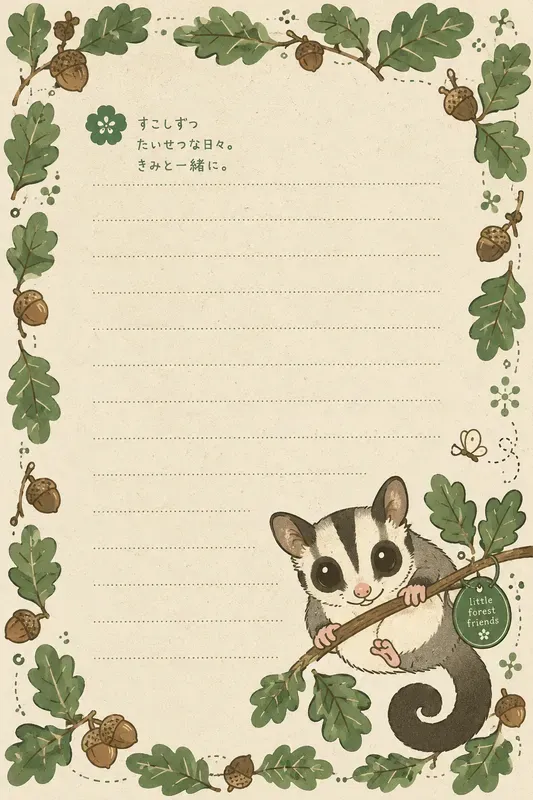 すこしずつ
たいせつな日々。
きみと一緒に。
little
forest
friends